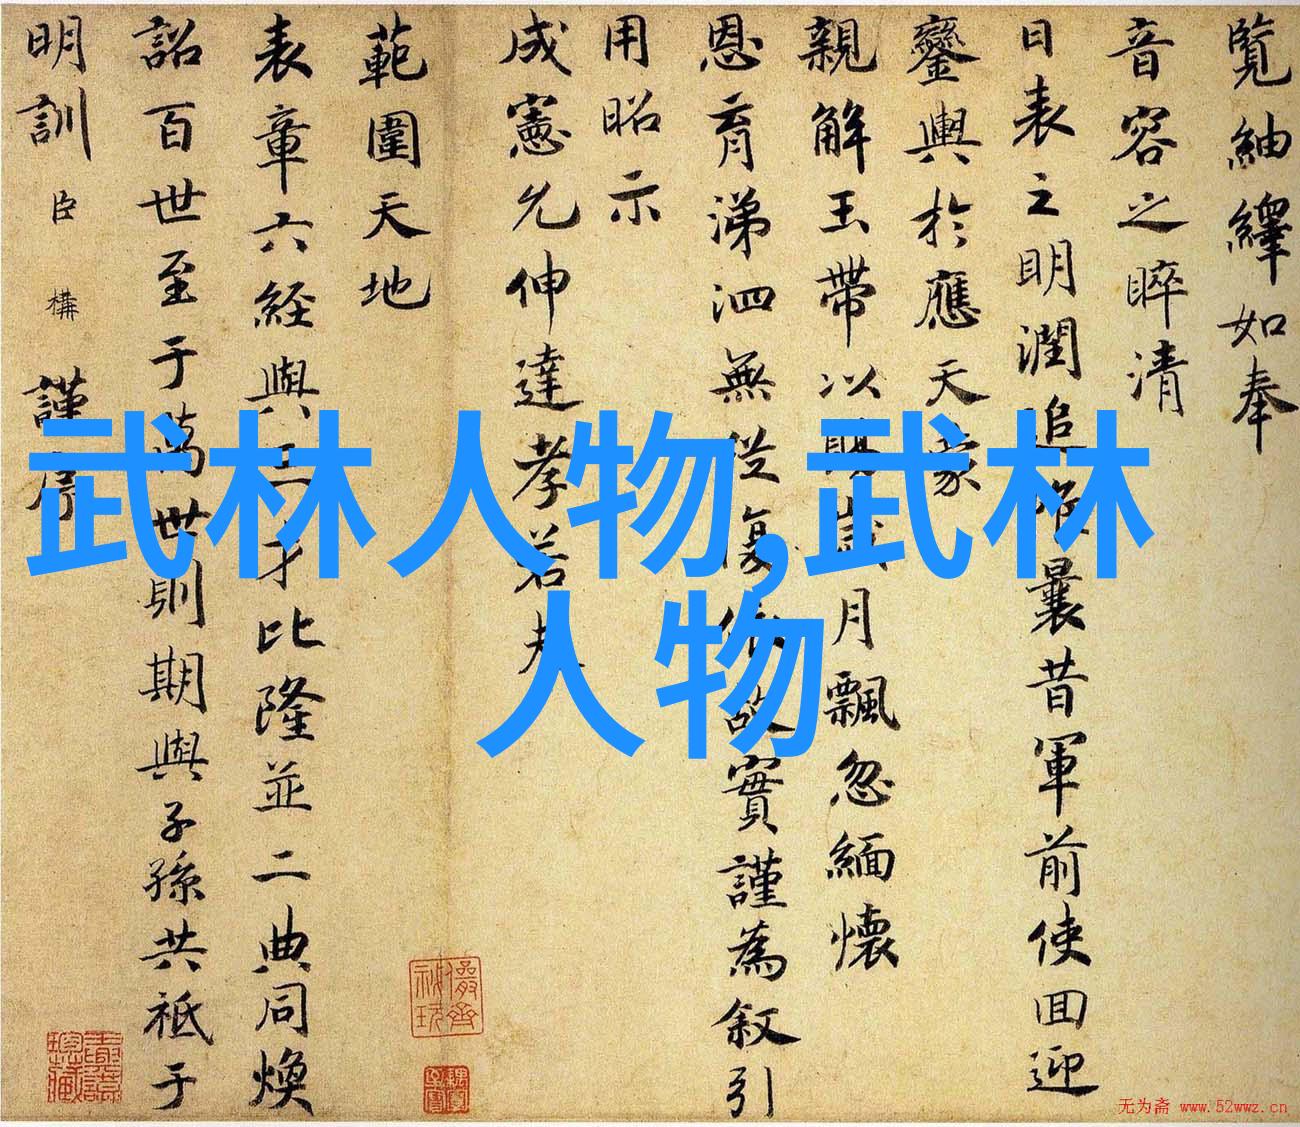 覽紬繹如奉
音容之睟清
日表之明潤追惟曩昔軍前使囬迎
鑾輿於應天蒙
親解玉帶以賜歲月飄忽緬懷
恩育涕泗無從復故實謹為叙引
用昭示
成憲允伸達孝若夫
範圍天地
表章六経與三才比隆並二典同煥
詔百世至于萬世則期與子孫共祗于
明訓臣構謹序
武林人物,武林
人物
儼齋秘玩
无为斋 www.52wwz.cn